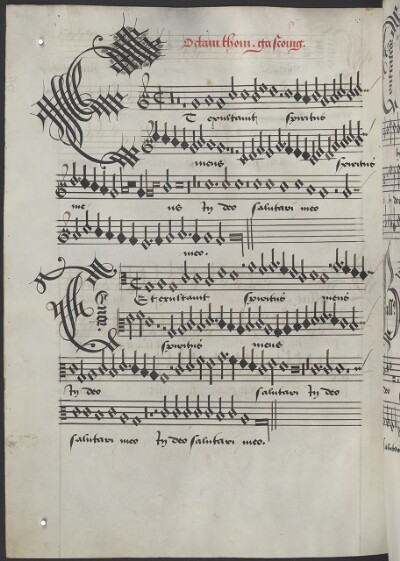 Octaui thom. gascoing.
Et exultauit spiritus
meus spiritus
me us In deo salutari meo
meo.
Tenor.
Et exultauit spiritus meus
spiritus meus
In deo salutari In deo
salutari meo In deo salutari meo.